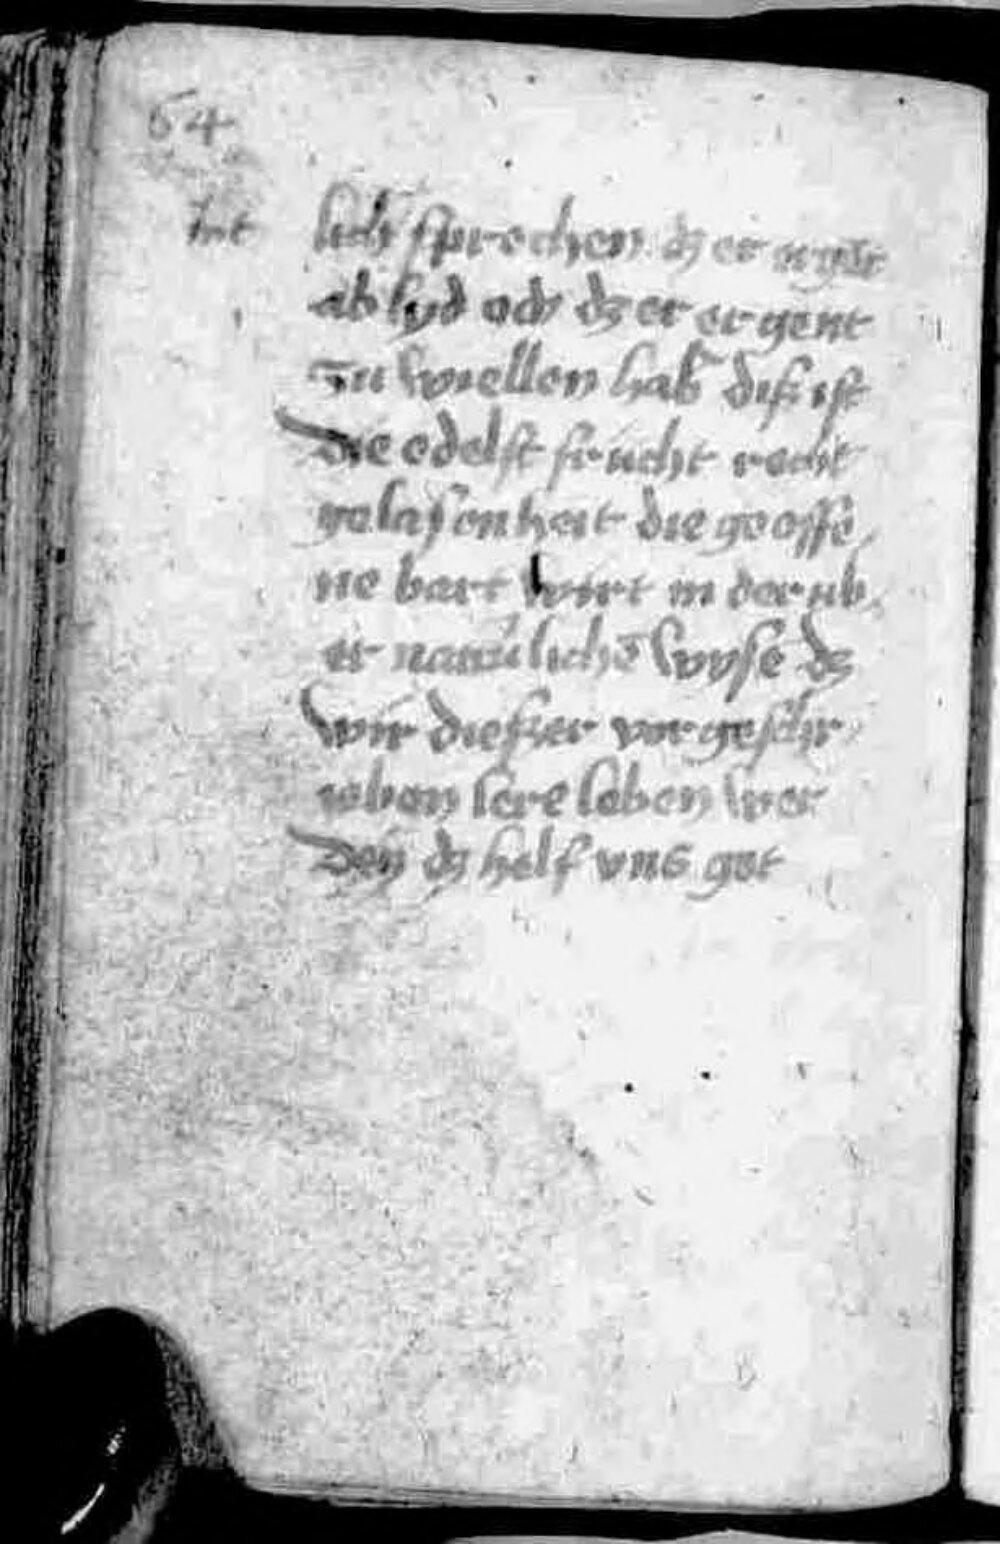 64
lich sprechen dz er
ab lyd oder dz er er gent
zu wellen hab dis ist
Die edelst frucht recht
gelasenheit die geoffe
ne bart wirt in der ub
er naturlichē wyse dz
wir dieser vor geschr
iben lere leben wer
Den dz helf vns got